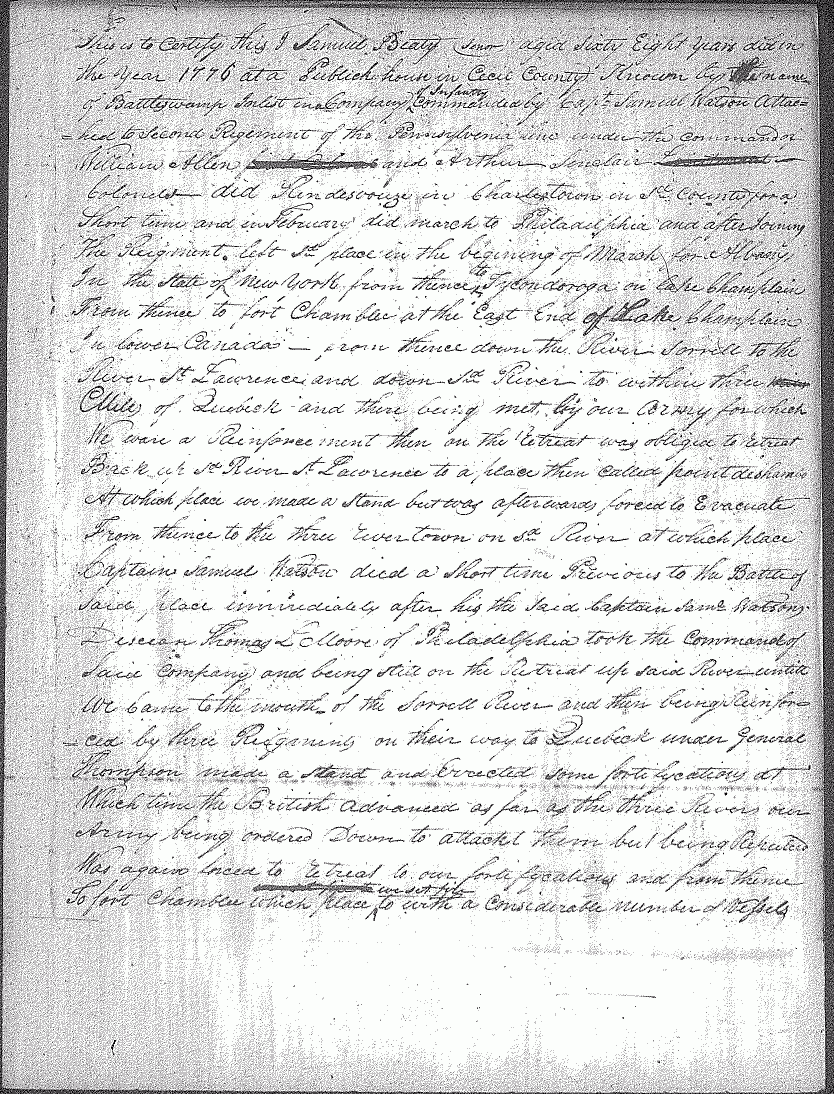 This is to Certify this I Samuel Beaty Senor aged Sixty Eight Years did in
the Year 1776 at a Publick house in Cecil County Known by the name
of Battleswamp Inlist in a Company of Infantry Commanded by Capt. Samuel Watson Attac-
-hed to Second Regement of the Pennsylvenia line under the command of
William Allen and Arthur Sinclair
Colonels did Rendesvouze in Charlestown in sd. County for a
Short time and in February did march to Philadelphia and after Joining
The Reigment left sd place in the begining of March for Albany
In the State of New York from thence to Tycondoroga on lake Champlain
From thence to fort Chamblee at the East End of Lake Champlain
In lower Canada — from thence down the River Sorrell to the
River St Lawrence and down sd River to within three
Miles of Quebeck and there being met by our Army for which
We ware a Reinforcement then on the retreat was obliged to retreat
Back up sd River St Lawrence to a place then called point deshambo
At which place we made a Stand but was afterwards forced to Evacuate
From thence to the three river town on sd River at which place
Captain Samuel Watson died a Short time Previous to the Battle of
Said place immediately after his the Said Captain Saml Watsons
Decean Thomas L Moore of Philadelphia took the Command of
Said Company and being still on the Retreat up said River untill
We Came to the mouth of the Sorrell River and then being Reinfor-
-ced by three Reigments on their way to Quebeck under General
Thompson made a stand and Errected some fortifycations at
Which time the British advanced as far as the three Rivers our
Army being ordered Down to attackt them but being Repulsed
Was again forced to retreat to our fortifycations and from thence
To fort Chamblee which place we set fire to with a Considerable number of Vessels